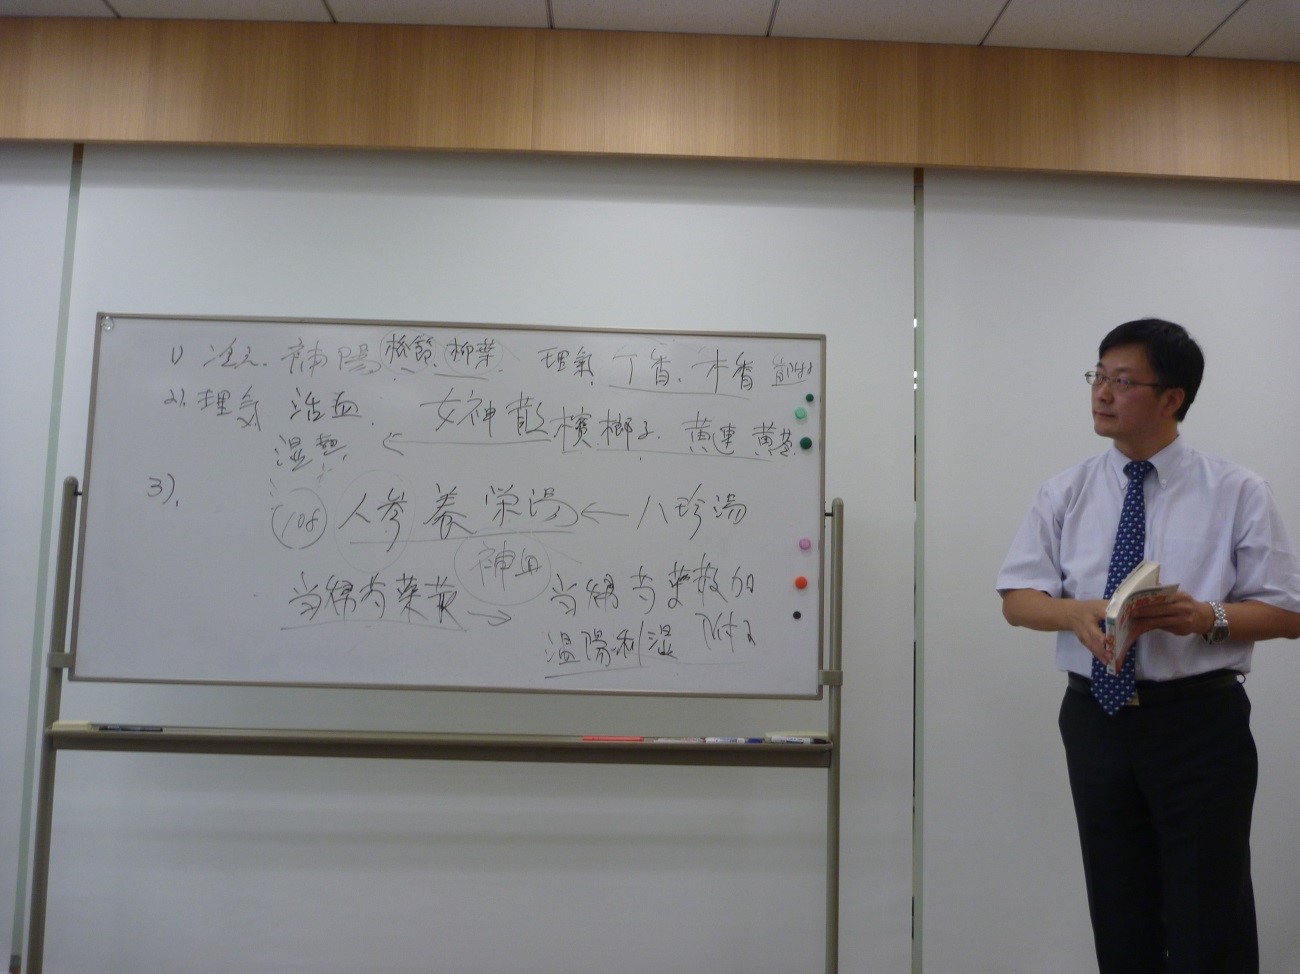 1) 補陽 理氣 丁香、木香
2). 理気 活血 女神散 檳榔子、黄連 黄芩
湿熱 ←
3). 108 人参養栄湯 ← 八珍湯
神血
当帰芍薬散 → 当帰芍薬散加
温陽利湿 附子